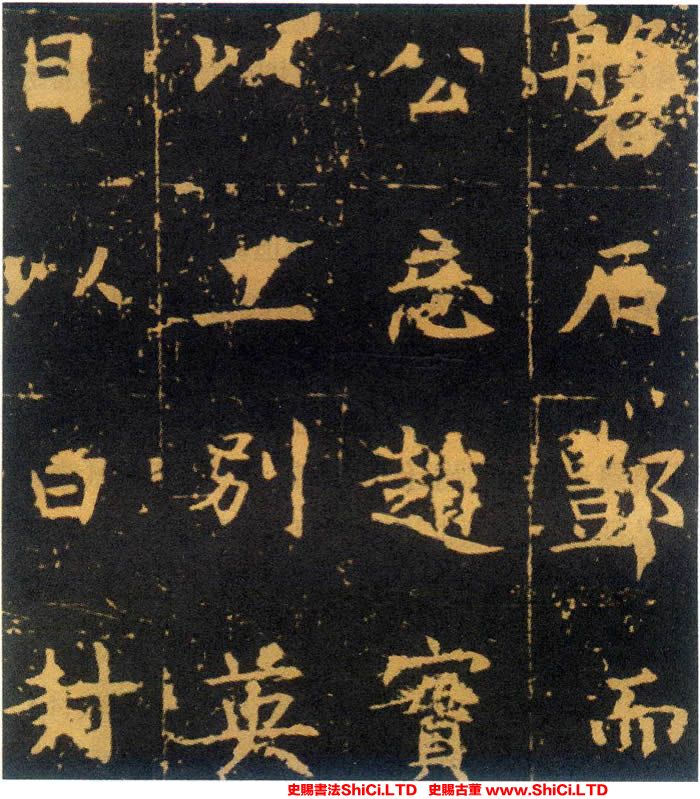 磐石而
公忘趙實
以工別英
日以白封
史賜書法ShiCi.LTD 史賜古董 www.ShiCi.LTD